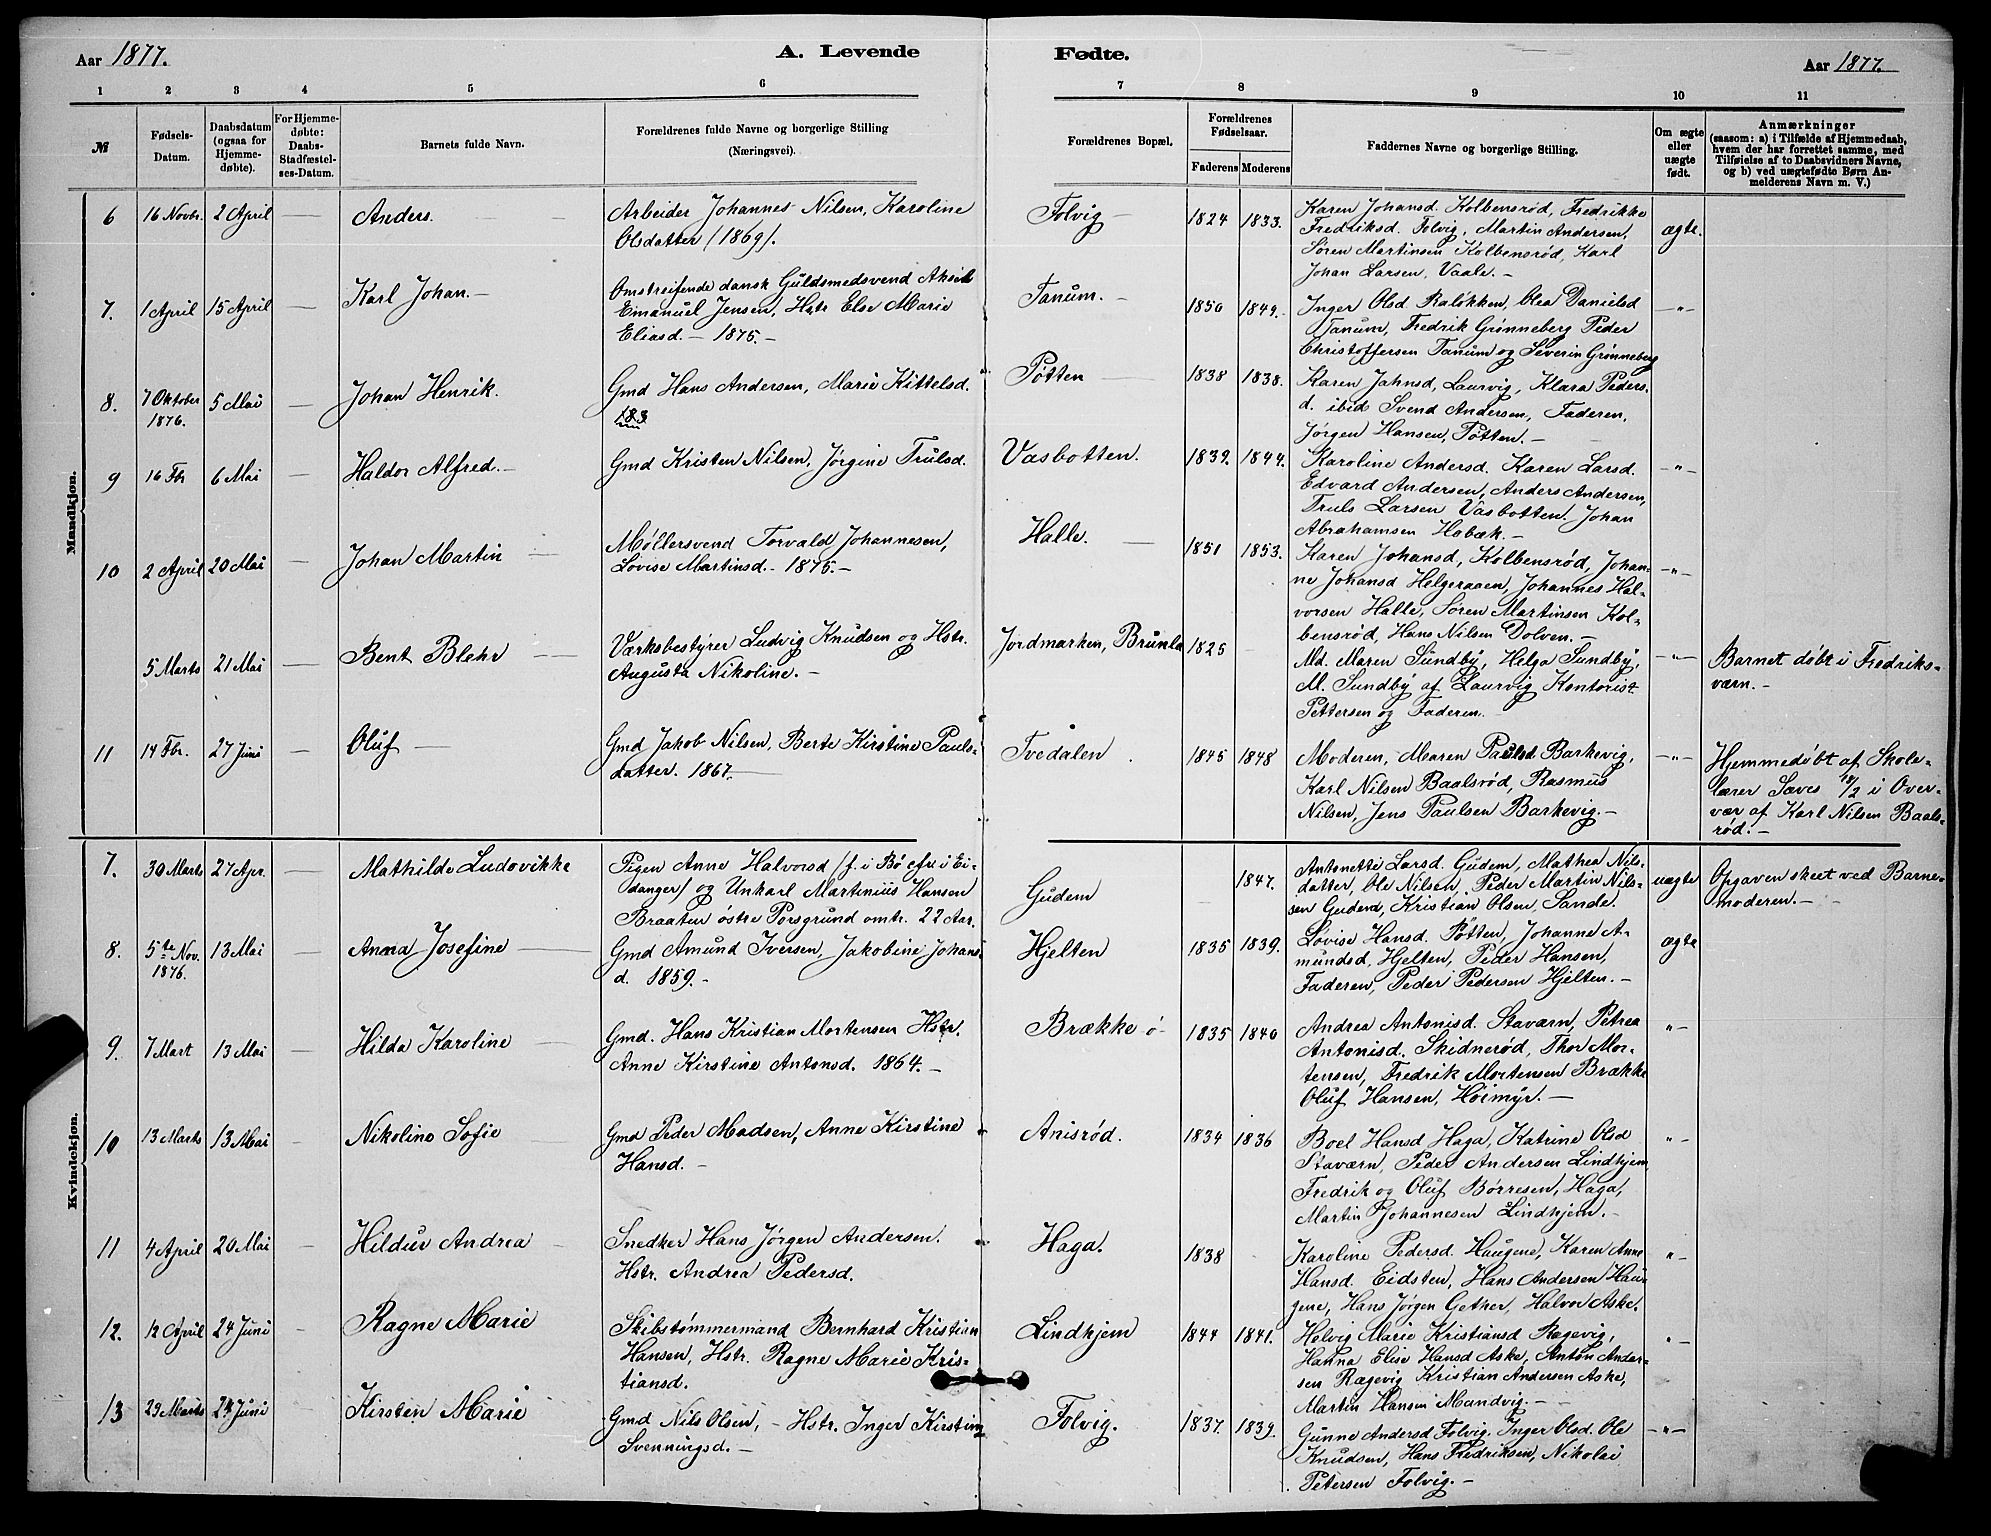 Aar 1877. A. Levende Fødte. Aar 1877.
1 2 3 4 5 6 7 8 9 10 11
№
Fødsels-
Datum.
Daabsdatum
(ogsaa for
Hjemme-
døbte).
For Hjemme-
døbte:
Daabs-
Stadfæstel-
ses-Datum.
Barnets fulde Navn.
Forældrenes fulde Navne og borgerlige Stilling
(Næringsvei).
Forældrenes Bopæl.
Forældrenes
Fødselsaar.
Faderens Moderens
Faddernes Navne og borgerlige Stilling.
Om ægte
eller
uægte
født.
Anmærkninger
(saasom: a) i Tilfælde af Hjemmedaab,
hvem der har forrettet samme, med
Tilføielse af to Daabsvidners Navne,
og b) ved uægtefødte Børn An-
melderens Navn m. V.)
Mandkjøn.
6 16 Novbr. 2 April — Anders.
Arbeider Johannes Nilsen, Karoline
Olsdatter (1869).
Folvig — 1824 1833.
Karen Johansd. Kolbensrød, Fredrikke
Fredriksd. Folvig, Martin Andersen,
Søren Martinsen Kolbensrød, Karl
Johan Larsen, Vaale. —
ægte.
7. 1 April 15 April — Karl Johan. —
Omstreifende dansk Guldsmedsvend Aksel
Emanuel Jensen, Hstr Else Marie
Eliasd. — 1875. —
Tanum. — 1850 1849.
Inger Olsd Raløkken, Olea Danielsd
Tanum, Fredrik Grønneberg Peder
Christoffersen Tanum og Severin Grønneberg
—"—
8. 7 Oktober
1876. 5 Mai — Johan Henrik.
Gmd Hans Andersen, Marie Kittelsd.
183
Pøtten — 1838 1838.
Karen Jahnsd, Laurvig, Klara Peders-
d. ibid Svend Andersen, Faderen,
Jørgen Hansen, Pøtten. —
9 16 Fbr 6 Mai — Haldor Alfred. —
Gmd Kristen Nilsen, Jørgine Trulsd.
Vasbotten. 1839. 1844.
Karoline Andersd. Karen Larsd.
Edvard Andersen, Anders Andersen,
Truls Larsen Vasbotten. Johan
Abrahamsen Hobæk. —
—"—
10 2 April 20 Mai — Johan Martin —
Møllersvend Torvald Johannesen,
Lovise Martinsd. — 1875. —
Halle. — 1851 1853.
Karen Johansd, Kolbensrød, Johan-
ne Johansd Helgeraaen, Johannes Hal-
vorsen Halle, Søren Martinsen Kol-
bensrød, Hans Nilsen Dolven. —
—"—
5 Marts 21 Mai — Bent Blehr —
Værksbestyrer Ludvig Knudsen og Hstr.
Augusta Nikoline. —
Jordmarken, Brunla 1825
Md. Maren Sundby, Helga Sundby,
M. Sundby af Laurvig Kontorist
Pettersen og Faderen. —
—"—
Barnet døbt i Fredriks-
værn. —
11 14 Fbr. 27 Juni — Oluf —
Gmd Jakob Nilsen, Berte Kirstine Pauls-
datter. 1867. —
Tvedalen . 1845 1848
Moderen, Maren Paulsd Barkevig,
Karl Nilsen Baalsrød, Rasmus
Nilsen, Jens Paulsen Barkevig. —
—"—
Hjemmedøbt af Skole-
lærer Sæves 18/2 i Over-
vær af Karl Nilsen Baals-
rød. —
Kvindekjøn.
7. 30 Marts 27 Apr. — Mathilde Ludovikke
Pigen Anne Halvorsd (f. i Bø efre i Ei-
danger) og Unkarl Martinius Hansen
Braaten østre Porsgrund omtr. 22 Aar.
Gudem — 1847.
Antonette Larsd. Gudem, Mathea Nils-
datter, Ole Nilsen, Peder Martin Nils-
sen Gudem, Kristian Olsen, Sande.
uægte
Opgaven skeet ved Barne-
moderen. —
8. 5te Nov.
1876. 13 Mai — Anna Josefine —
Gmd Amund Iversen, Jakobine Johans-
d. 1859. —
Hjelten 1835 1839.
Lovise Hansd. Pøtten, Johanne A-
mundsd, Hjelten, Peder Hansen,
Faderen, Peder Pedersen Hjelten. —
ægte
9. 7 Mart 13 Mai — Hilda Karoline —
Gmd. Hans Kristian Mortensen Hstr.
Anne Kirstine Antonsd. 1864. —
Brække ø- 1835 1840
Andrea Antonisd. Staværn, Petrea
Antonisd. Skidnerød, Thor Mor-
tensen, Fredrik Mortensen Brække
Oluf Hansen, Høimyr. —
"—
10 13 Marts 13 Mai — Nikoline Sofie
Gmd Peder Madsen, Anne Kirstine
Hansd. —
Anisrød. 1834 1836
Boel Hansd Haga, Katrine Olsd
Staværn, Peder Andersen Lindhjem
Fredrik og Oluf Børresen, Haga,
Martin Johannesen Lindhjem. —
"—
11 4 April 20 Mai — Hildur Andrea
Snedker Hans Jørgen Andersen.
Hstr. Andrea Pedersd.
Haga. 1838 -
Karoline Pedersd. Haugene, Karen Anne
Hansd. Eidsten, Hans Andersen Hau-
gene, Hans Jørgen Gether, Halvor Aske.
"—
12. 12 April 24 Juni — Ragne Marie
Skibstømmermand Bernhard Kristian
Hansen, Hstr. Ragne Marie Kris-
tiansd.
Lindhjem 1844 1841.
Helvig Marie Kristiansd Rægevig,
Hanna Elise Hansd Aske, Anton Ander-
sen Rægevig Kristian Andersen Aske,
Martin Hansen Mandvig. —
"—
13 29 Marts 24 Juni — Kirsten Marie
Gmd Nils Olsen, — Hstr. Inger Kirstine
Svenningsd. —
Folvig. 1837. 1839.
Gunne Andersd Folvig. Inger Olsd. Ole
Knudsen, Hans Fredriksen, Nikolai
Petersen Folvig. —
—"—